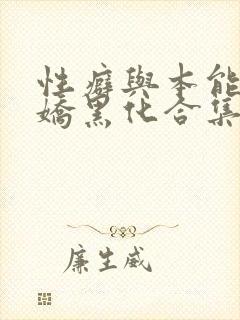 性癖與本能
嬌黑化合集
廉生威